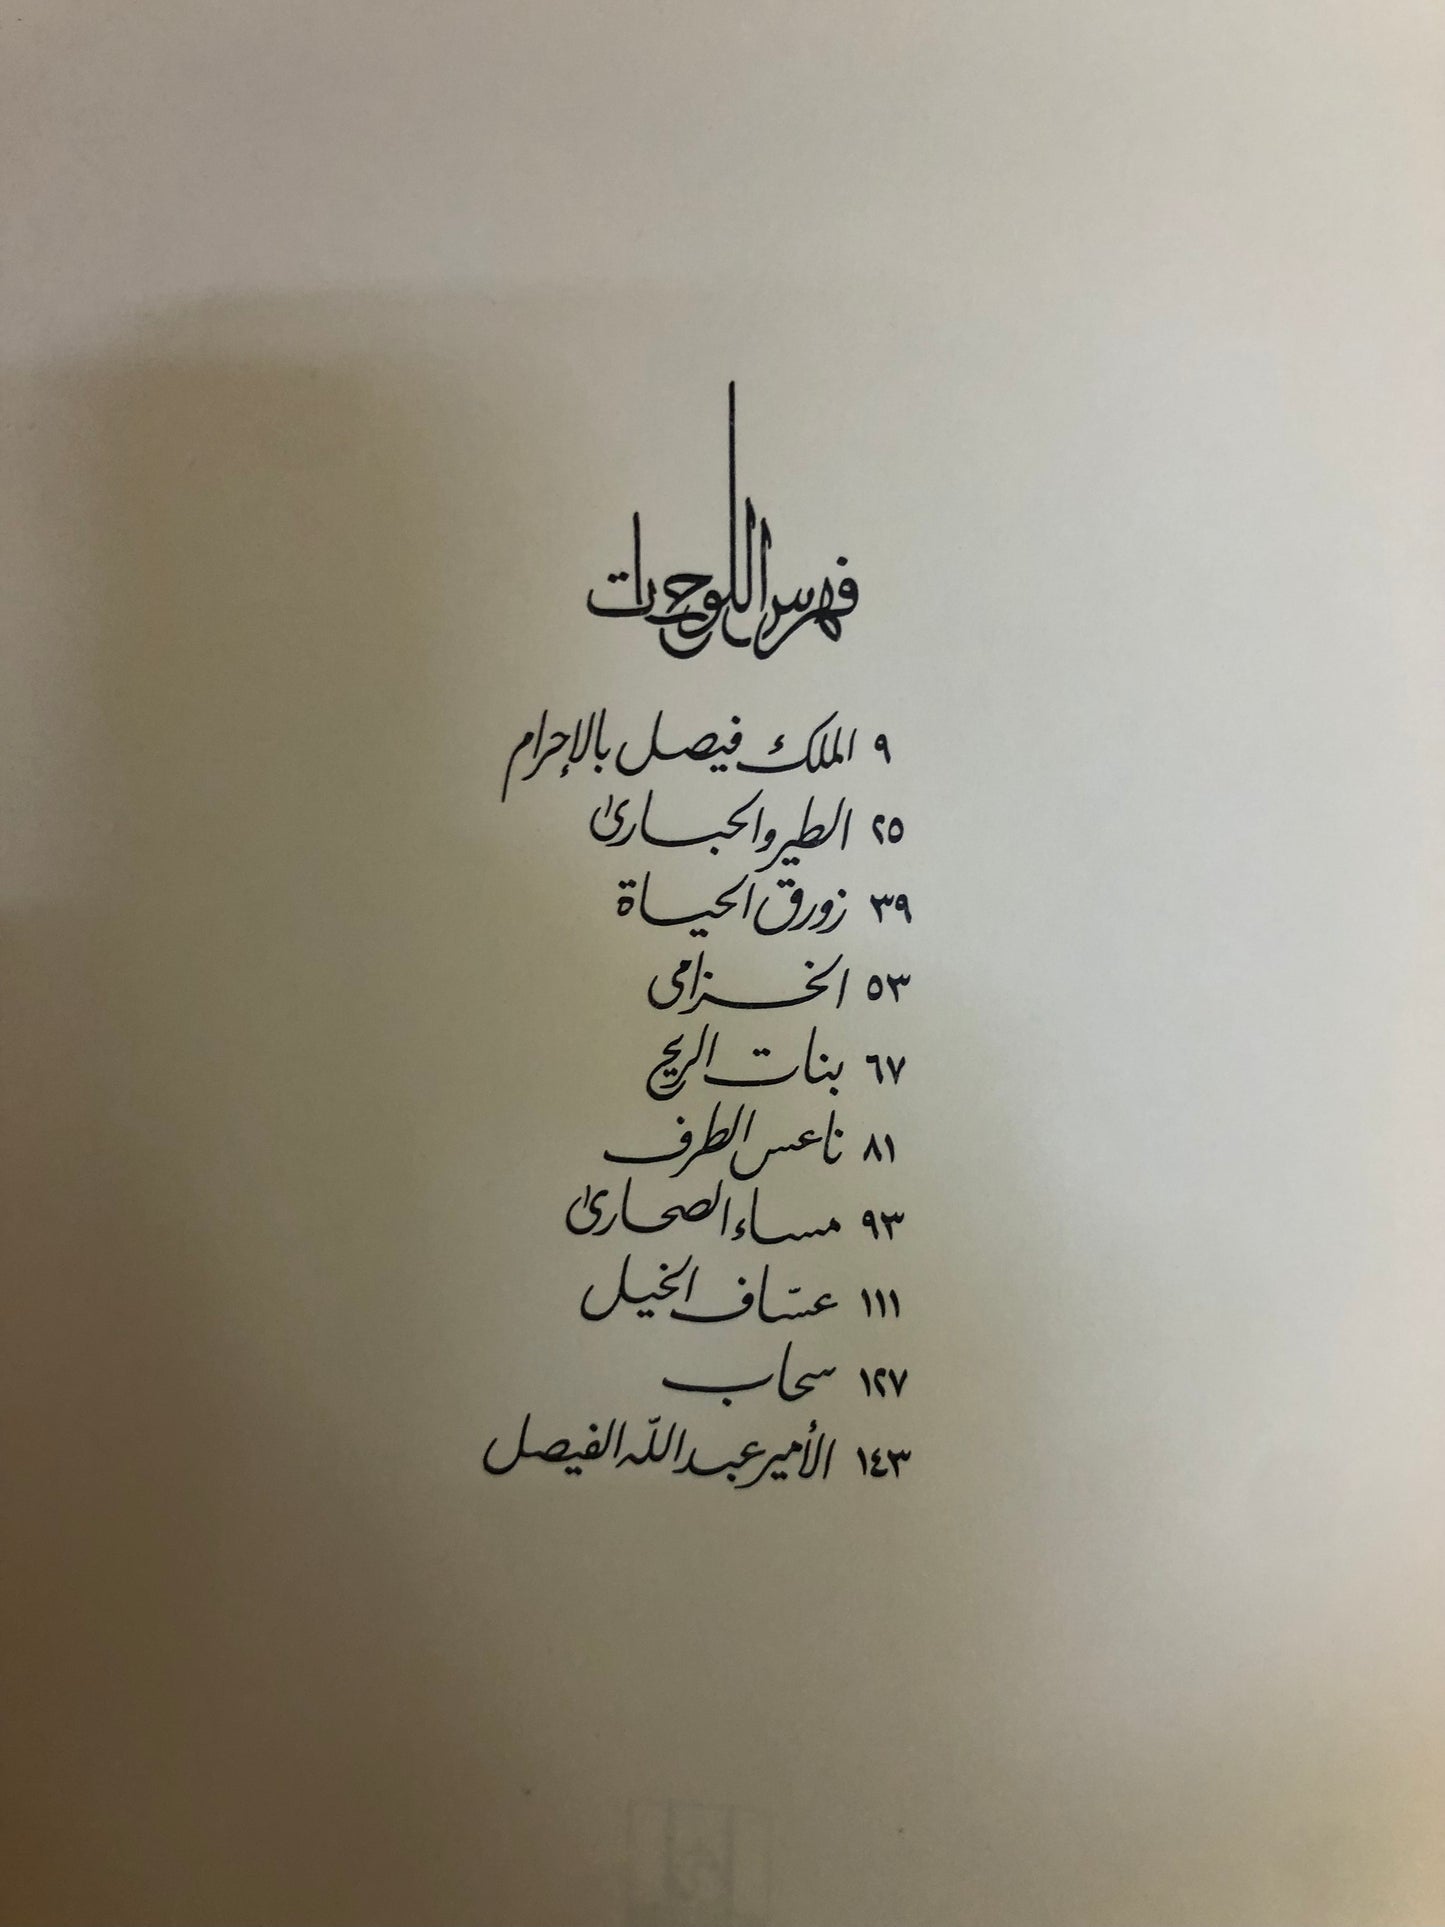 فهرس اللوحات
٩ الملك فيصل بالإحرام
٢٥ الطير والحبارىٰ
٣٩ زورق الحياة
٥٣ الخزامى
٦٧ بنات الريح
٨١ ناعس الطرف
٩٣ مساء الصحارىٰ
١١١ عسّاف الخيل
١٢٧ سحاب
١٤٣ الأمير عبد اللّه الفيصل